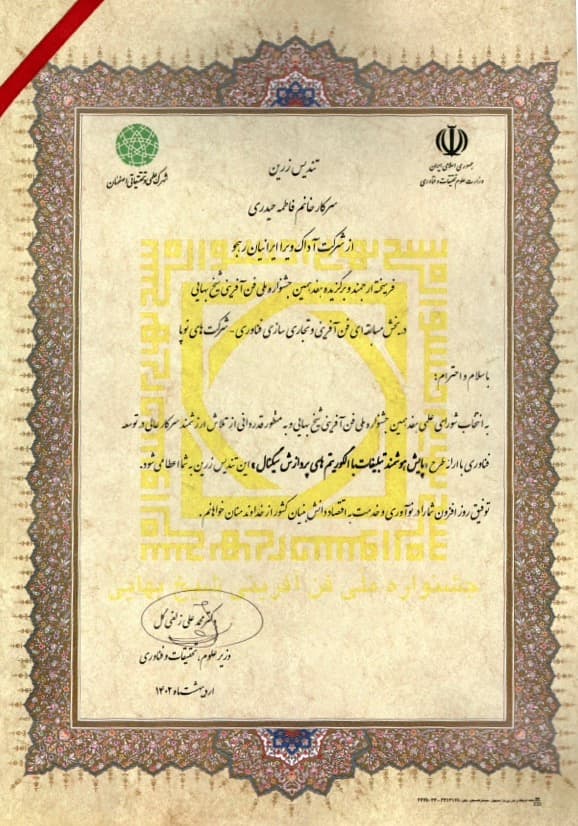 جمهوری اسلامی ایران
وزارت علوم تحقیقات و فناوری
شهرک علمی و تحقیقاتی اصفهان
تندیس زرین
سرکار خانم فاطمه حیدری
از شرکت آداک ویرا ایرانیان رهجو
فریخته ارجمند و برگزیده هفدهمین جشنواره ملی فن آفرینی شیخ بهایی
در بخش مسابقه ای فن آفرینی و تجاری سازی فناوری - شرکت های نوپا
با سلام و احترام؛
به انتخاب شورای علمی هفدهمین جشنواره ملی فن آفرینی شیخ بهایی و به منظور قدردانی از تلاش ارزشمند سرکار عالی در توسعه
فناوری با ارائه طرح «پایش هوشمند تبلیغات با الگوریتم های پردازش سیگنال» این تندیس زرین به شما اعطا می شود.
توفیق روز افزون شما را در نوآوری و خدمت به اقتصاد دانش بنیان کشور از خداوند منان خواهانم.
جشنواره ملی فن آفرینی شیخ بهایی
دکتر محمد علی زلفی گل
وزیر علوم، تحقیقات و فناوری
اردیبهشت ماه ۱۴۰۲